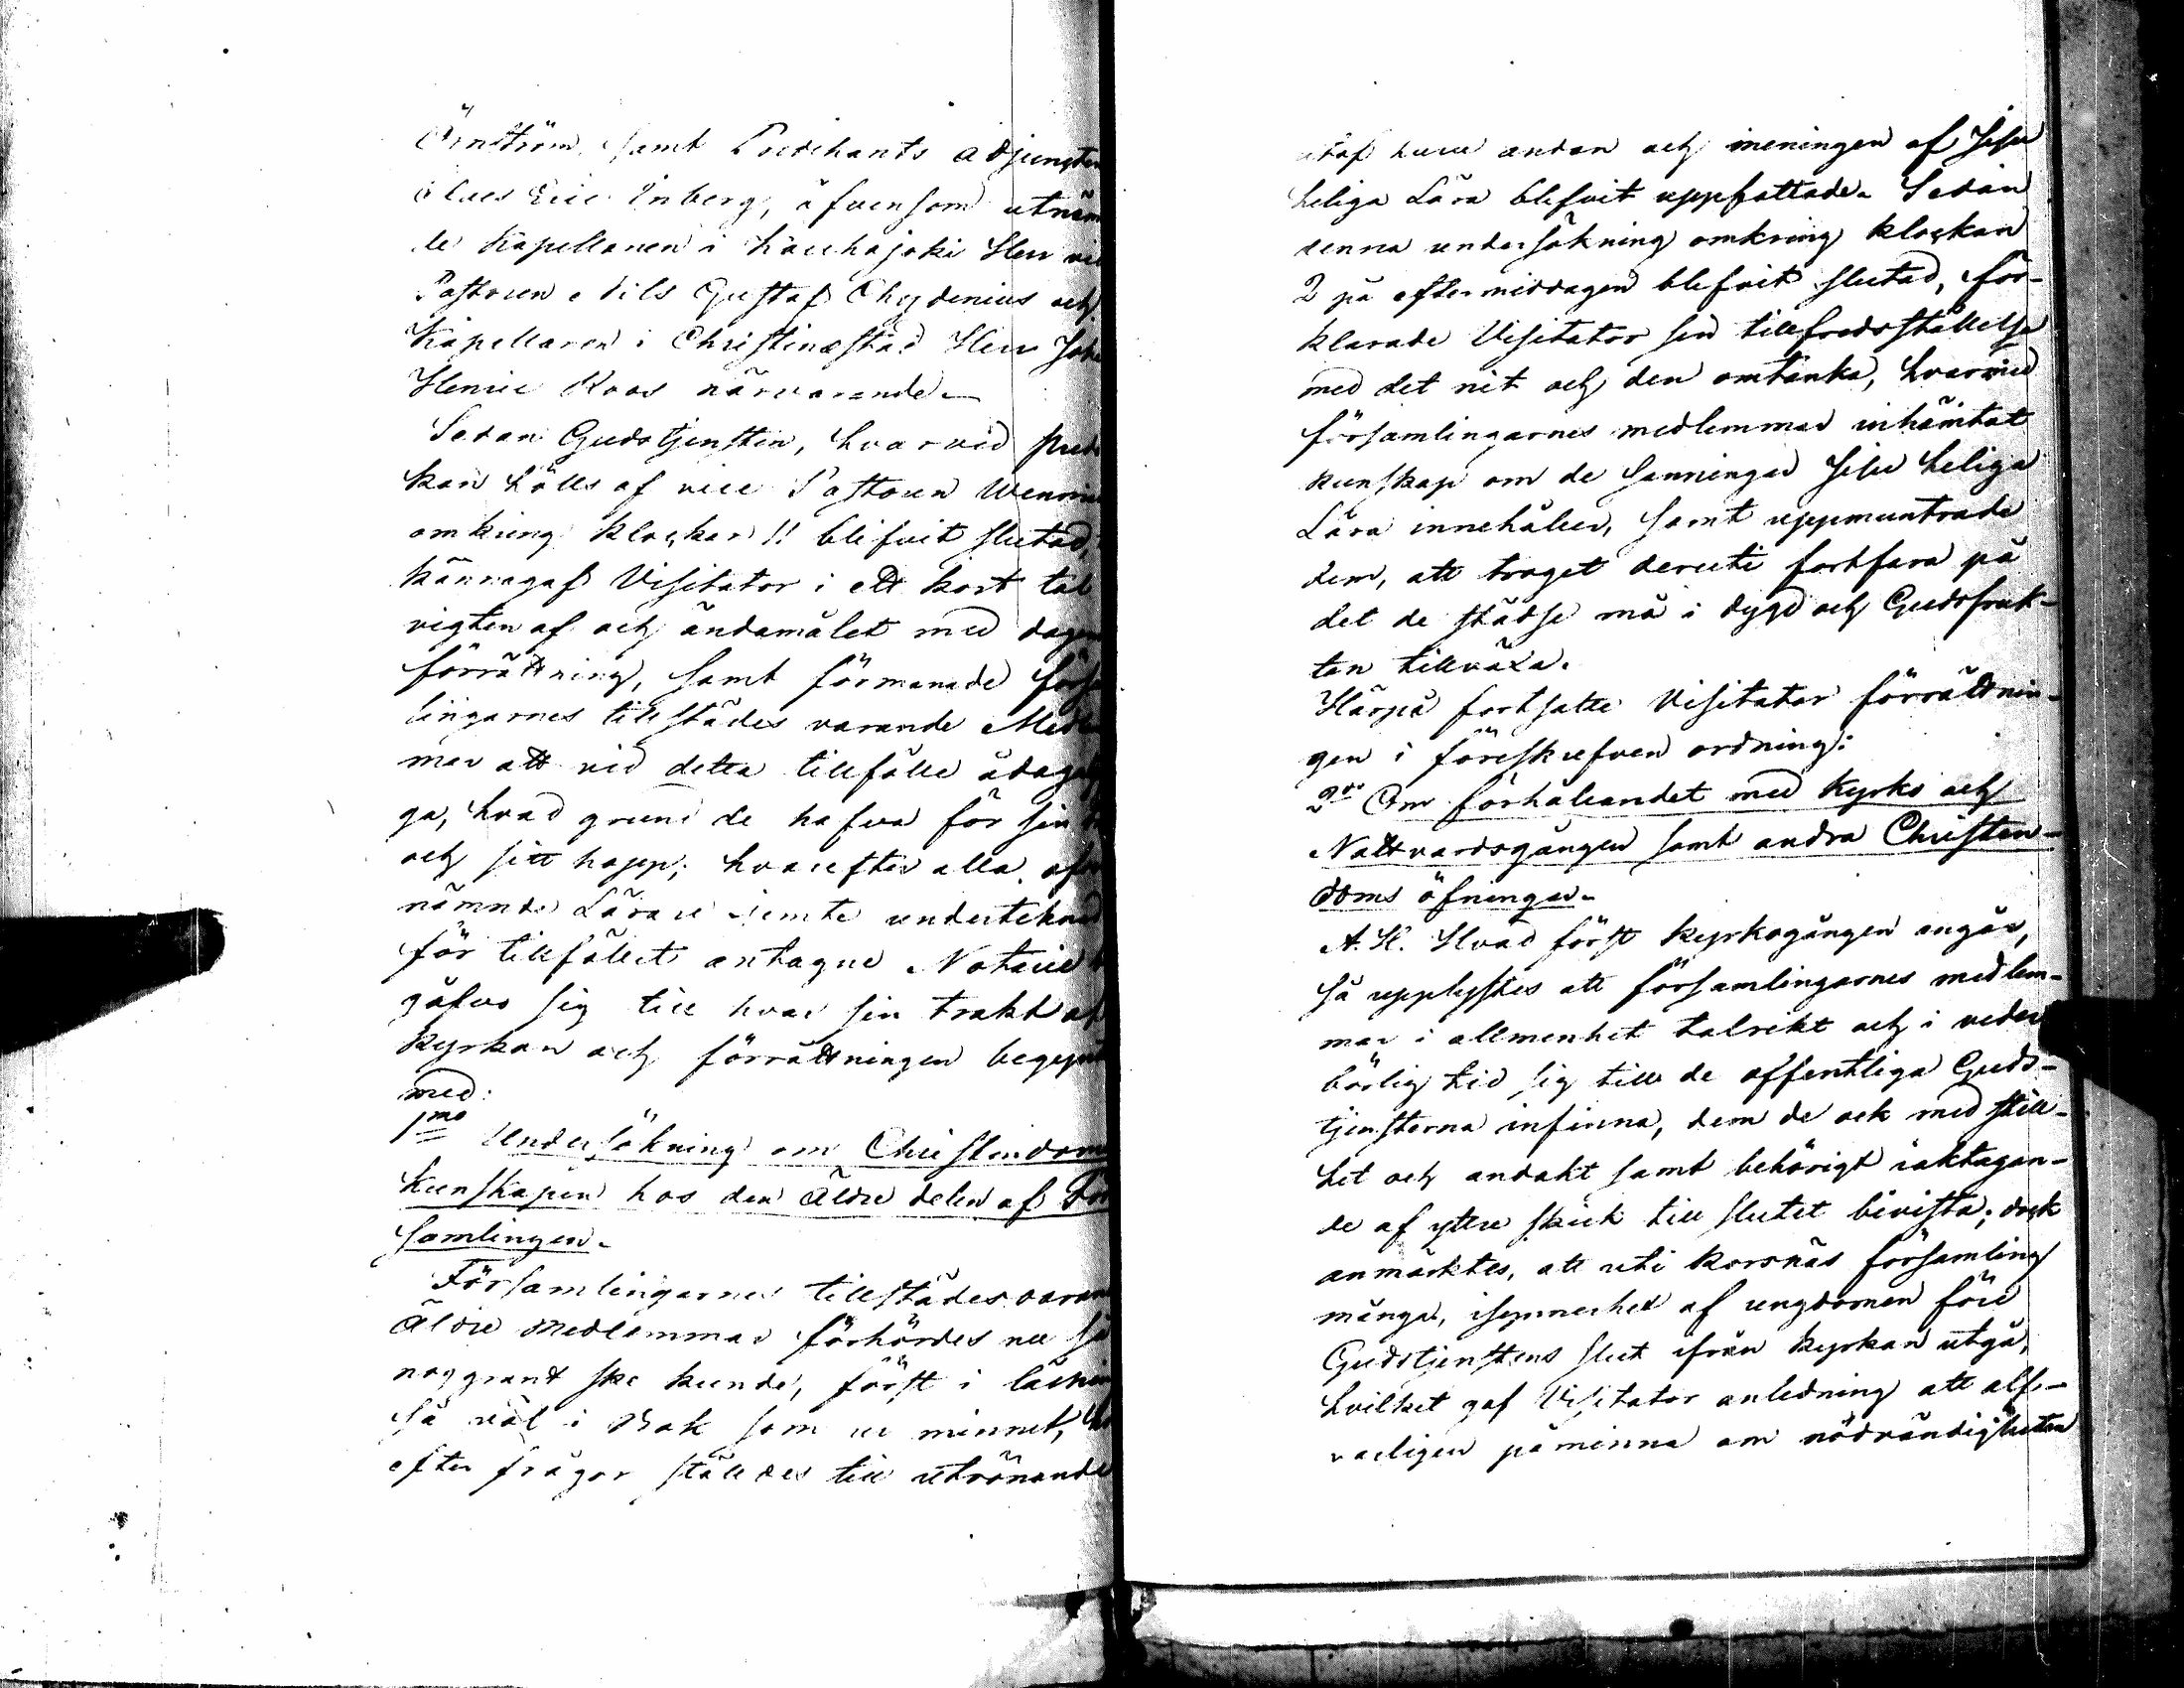 Örnström, samt Predikants adjuncten
Claes Eric Inberg, äfvensom utnäm
de Kapellanen i Kauhajoki Herr vi
Pastoren Nils Gustaf Chydenius och
Kapellanen i Christinæstad Herr Joh
Henric Roos närvarande.
Sedan Gudstjensten, hvarvid predi
kan hölls af vice Pastoren
omkring klockan 11 blifvit slutad,
kännagaf Visitator i ett kort tal
vigten af och ändamålet med dagen
förrättning, samt förmanade förs
lingarnes tillstädes varande Medle
mar att vid detta tillfälle ådaga
ga, hvad grund de hafva för sin
och sitt hopp; hvarefter alla of
nämnde Lärare jemte undertecknad
för tillfället antagne Notarie
gåfvo sig till hvar sin trakt af
kyrkan och förrättningen begynt
med:
1mo Undersökning om Christendom
kunskapen hos den Äldre delen af För
samlingen.
Församlingarnes tillstädes varan
Äldre medlemmar förhördes nu så
noggrant ske kunde, först i läsnin
så väl i Bok som ur minnet,
efter frågor ställdes till utrönande
utaf huru andan och meningen af Jesu
heliga Lära blifvit uppfattade. Sedan
denna undersökning omkring klockan
2 på eftermiddagen blifvit slutad, för-
klarade Visitator sin tillfredsställelse
med det nit och den omtanka, hvarmed
församlingarnes medlemmar inhämtat
kunskap om de sanningar Jesu heliga
Lära innehåller, samt uppmuntrade
dem, att troget deruti fortfara på
det de städse må i dygd och Gudsfruk-
tan tillväxa.
Härpå fortsatte Visitator förrättnin-
gen i föreskrefven ordning:
2do Om förhållandet med Kyrko och
Nattvardsgången samt andra Christen-
doms öfningar.
A. H. Hvad först kyrkogången angår,
så upplystes att församlingarnes medlem-
mar i allmenhet talrikt och i veder
börlig tid sig till de offentliga Guds-
tjensterna infinna, dem de ock med still-
het och andakt samt behörigt iaktagan-
de af yttre skick till slutet bivista; dock
anmärktes, att uti Korsnäs församling
månge, isynnerhet af ungdomen före
Gudstjenstens slut ifrån kyrkan utgå,
hvilket gaf Visitator anledning att alf-
varligen påminna om nödvändigheten